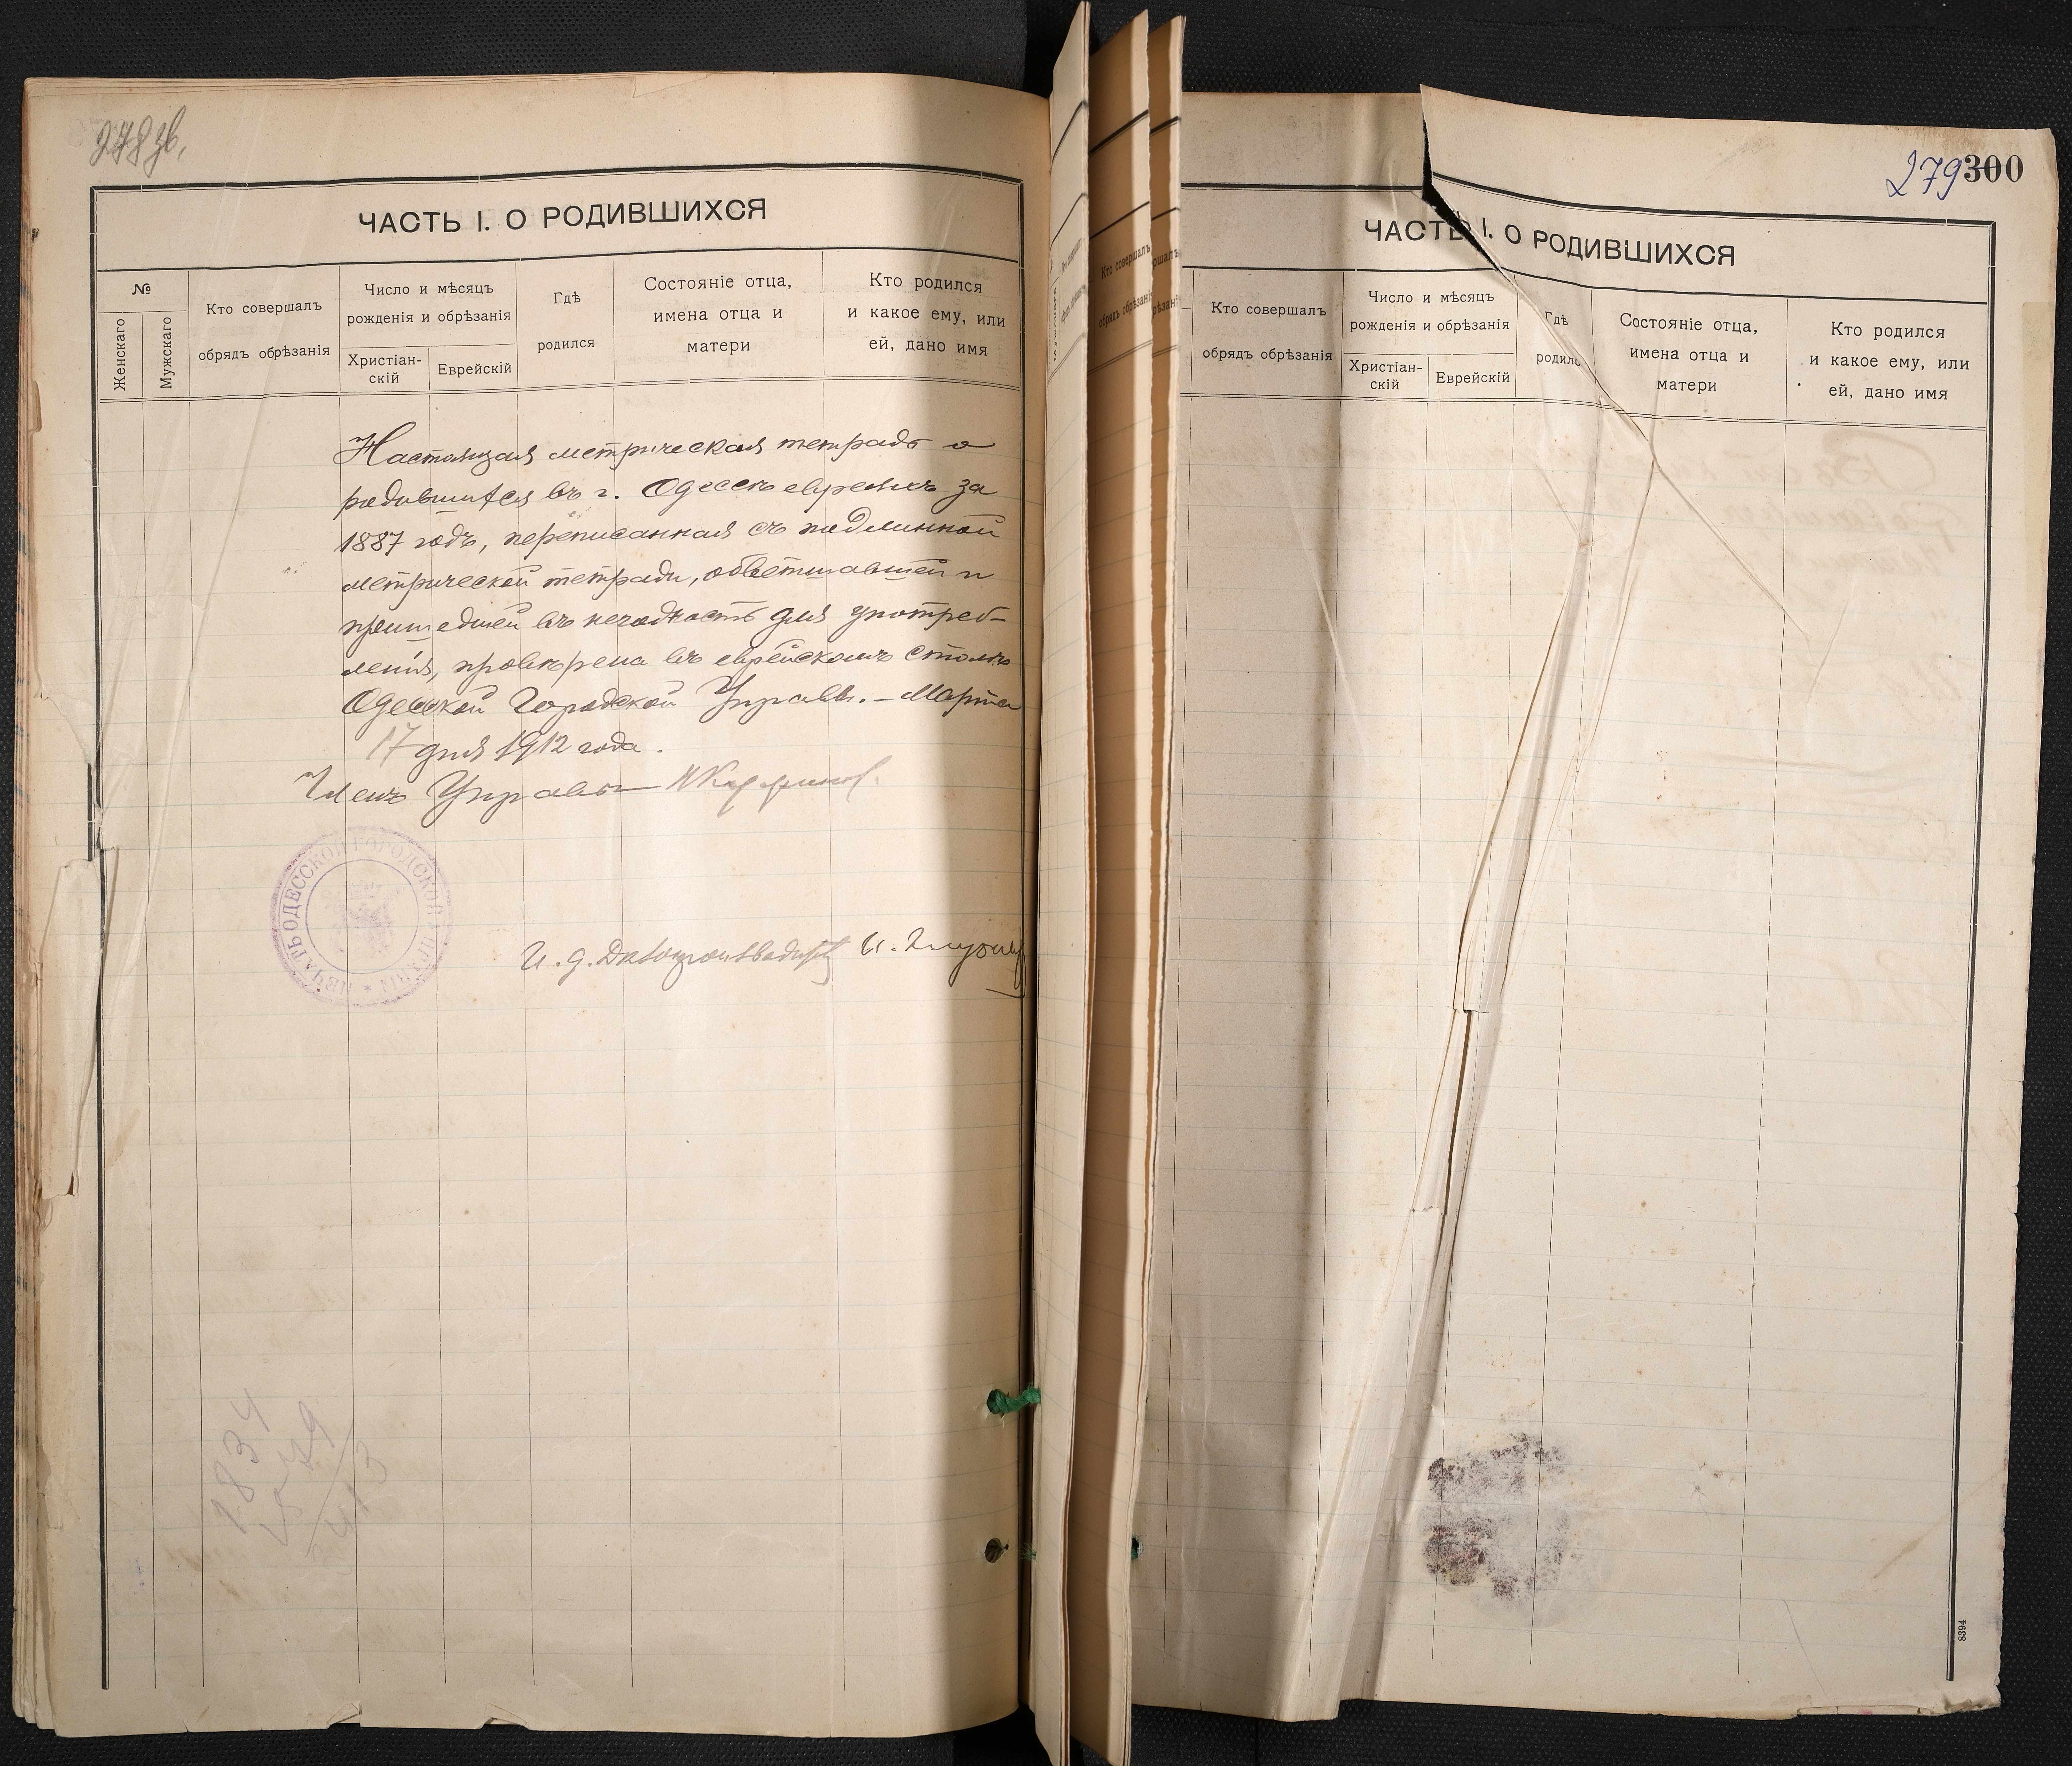 278 зв.
ЧАСТЬ I. О РОДИВШИХСЯ
№
Женскаго
Мужскаго
Кто совершалъ
обрядъ обрѣзанія
Число и мѣсяцъ
рожденія и обрѣзанія
Христіан-
скій
Еврейскій
Гдѣ
родился
Состояніе отца,
имена отца и
матери
Кто родился
и какое ему, или
ей, дано имя
Настоящая метрическая тетрадь о
родившихся въ г. Одессѣ евреяхъ за
1887 годъ, переписанная съ подлинной
метрической тетради, обветшавшей и
пришедшей въ негодность для употреб-
ленія, провѣрена въ еврейскомъ столѣ
Одесской Городской Управы. – Марта
17 дня 1912 года.
Членъ Управы
ПЕЧАТЬ ОДЕССКОЙ ГОРОДСКОЙ УПРАВЫ
И. д. Дѣлопроизводителя И.
1834
579
413
279 300
ЧАСТЬ I. О РОДИВШИХСЯ
Кто совершалъ
обрядъ обрѣзанія
Число и мѣсяцъ
рожденія и обрѣзанія
Христіан-
скій
Еврейскій
Гдѣ
родилс
Состояніе отца,
имена отца и
матери
Кто родился
и какое ему, или
ей, дано имя
8394